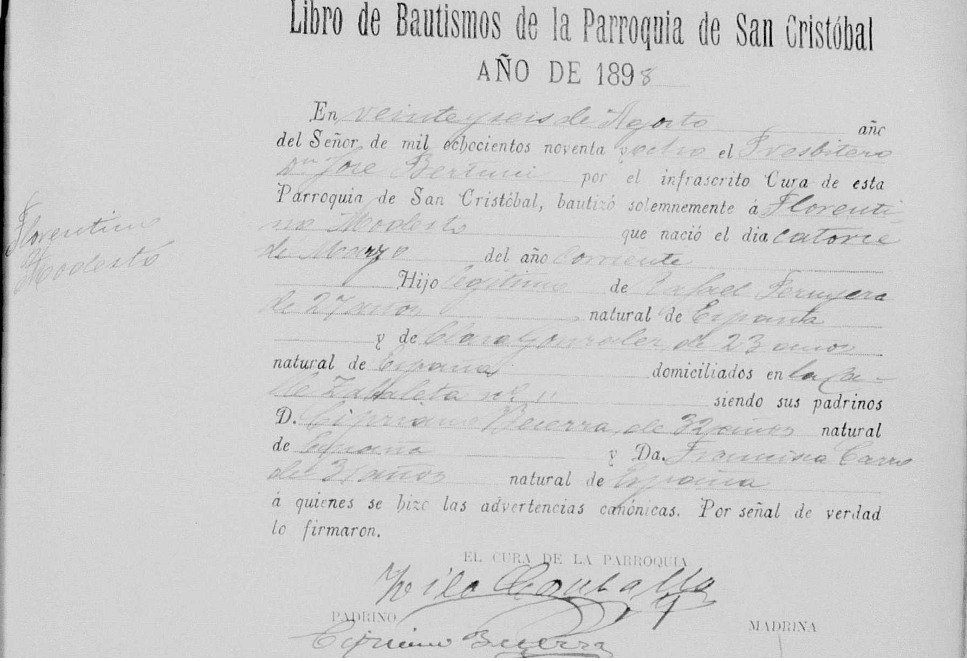 Libro de Bautismos de la Parroquia de San Cristóbal
AÑO DE 1898
En veinte y seis de Agosto añc
del Señor de mil ochocientos noventa y ocho el Presbitero
Dn José Bertuni por el infrascrito Cura de esta
Parroquia de San Cristóbal, bautizó solemnemente á Florenti
no Modesto que nació el dia catorce
de Marzo del año corriente
Florentino
Modesto
Hijo legitimo de Rafael
de 27 años natural de España
y de Clara Gonzalez, de 23 años
natural de España domiciliados en la Ca-
lle Zabaleta nº 11 siendo sus padrinos
D. Cipriano Becerra, de 32 años natural
de España y Da. Francisca Carro
de 31 años natural de España
á quienes se hizo las advertencias canónicas. Por señal de verdad
lo firmaron.
EL CURA DE LA PARROQUIA
PADRINO MADRINA
Cipriano Becerra